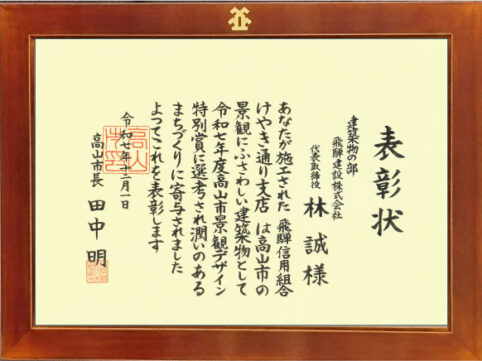 表彰状
建築物の部
飛騨建設株式会社
代表取締役 林 誠 様
あなたが施工された 飛騨信用組合
けやき通り支店 は高山市の
景観にふさわしい建築物として
令和七年度高山市景観デザイン
特別賞に選考され潤いのある
まちづくりに寄与されました
よってこれを表彰します
令和七年十二月一日
高山市長 田中 明